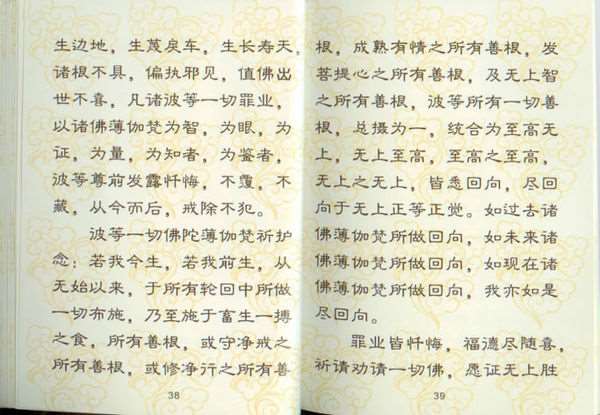 生边地，生蔑戾车，生长寿天，
诸根不具，偏执邪见，值佛出
世不喜，凡诸波等一切罪业，
以诸佛薄伽梵为智，为眼，为
证，为量，为知者，为鉴者，
波等尊前发露忏悔，不覆，不
藏，从今而后，戒除不犯。
波等一切佛陀薄伽梵祈护
念：若我今生，若我前生，从
无始以来，于所有轮回中所做
一切布施，乃至施于畜生一搏
之食，所有善根，或守净戒之
所有善根，或修净行之所有善
38
根，成熟有情之所有善根，发
菩提心之所有善根，及无上智
之所有善根，波等所有一切善
根，总摄为一，统合为至高无
上，无上至高，至高之至高，
无上之无上，皆悉回向，尽回
向于无上正等正觉。如过去诸
佛薄伽梵所做回向，如未来诸
佛薄伽梵所做回向，如现在诸
佛薄伽梵所做回向，我亦如是
尽回向。
罪业皆忏悔，福德尽随喜，
祈请劝请一切佛，愿证无上胜
39